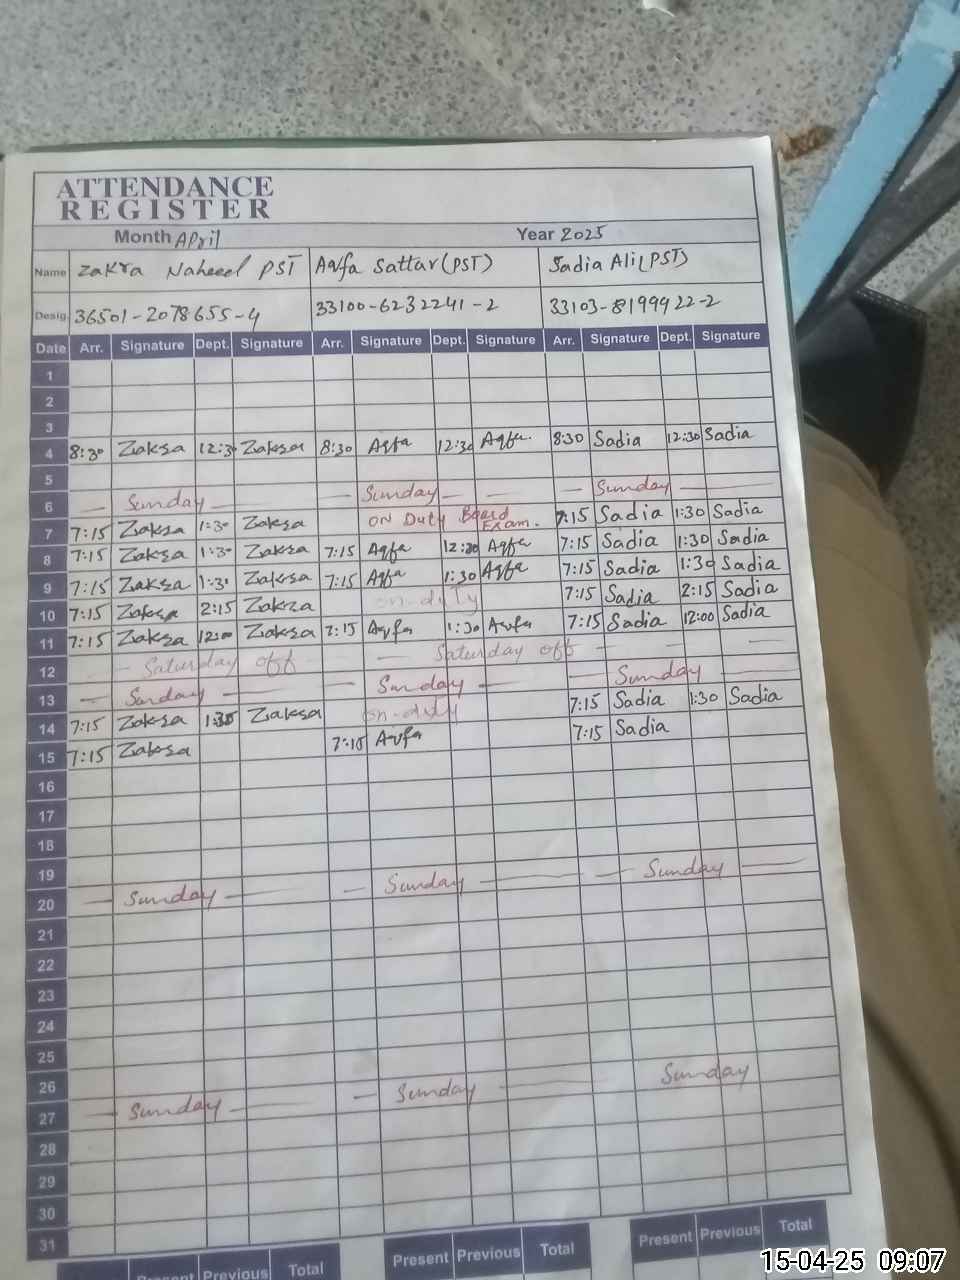 ATTENDANCE
REGISTER
Month April Year 2025
Name Zakra Naheed PST Aqfa Sattar (PST) Sadia Ali (PST)
Desig. 36501-2078655-4 33100-6232241-2 33103-8199922-2
Date Arr. Signature Dept. Signature Arr. Signature Dept. Signature Arr. Signature Dept. Signature
1
2
3
4 8:30 Zaksa 12:30 Zaksa 8:30 Aqfa 12:30 Aqfa 8:30 Sadia 12:30 Sadia
5
6 Sunday Sunday Sunday
7 7:15 Zaksa 1:30 Zaksa ON Duty Board Exam. 7:15 Sadia 1:30 Sadia
8 7:15 Zaksa 1:30 Zaksa 7:15 Aqfa 12:30 Aqfa 7:15 Sadia 1:30 Sadia
9 7:15 Zaksa 1:30 Zaksa 7:15 Aqfa 1:30 Aqfa 7:15 Sadia 1:30 Sadia
10 7:15 Zaksa 2:15 Zakra on-duty 7:15 Sadia 2:15 Sadia
11 7:15 Zaksa 12:00 Zaksa 7:15 Aqfa 1:30 Aqfa 7:15 Sadia 12:00 Sadia
12 Saturday off Saturday off
13 Sunday Sunday Sunday
14 7:15 Zaksa 1:30 Zaksa on-duty 7:15 Sadia 1:30 Sadia
15 7:15 Zaksa 7:15 Aqfa 7:15 Sadia
16
17
18
19
20 Sunday Sunday Sunday
21
22
23
24
25
26
27 Sunday Sunday Sunday
28
29
30
31
Present Previous Total Present Previous Total Present Previous Total
15-04-25 09:07